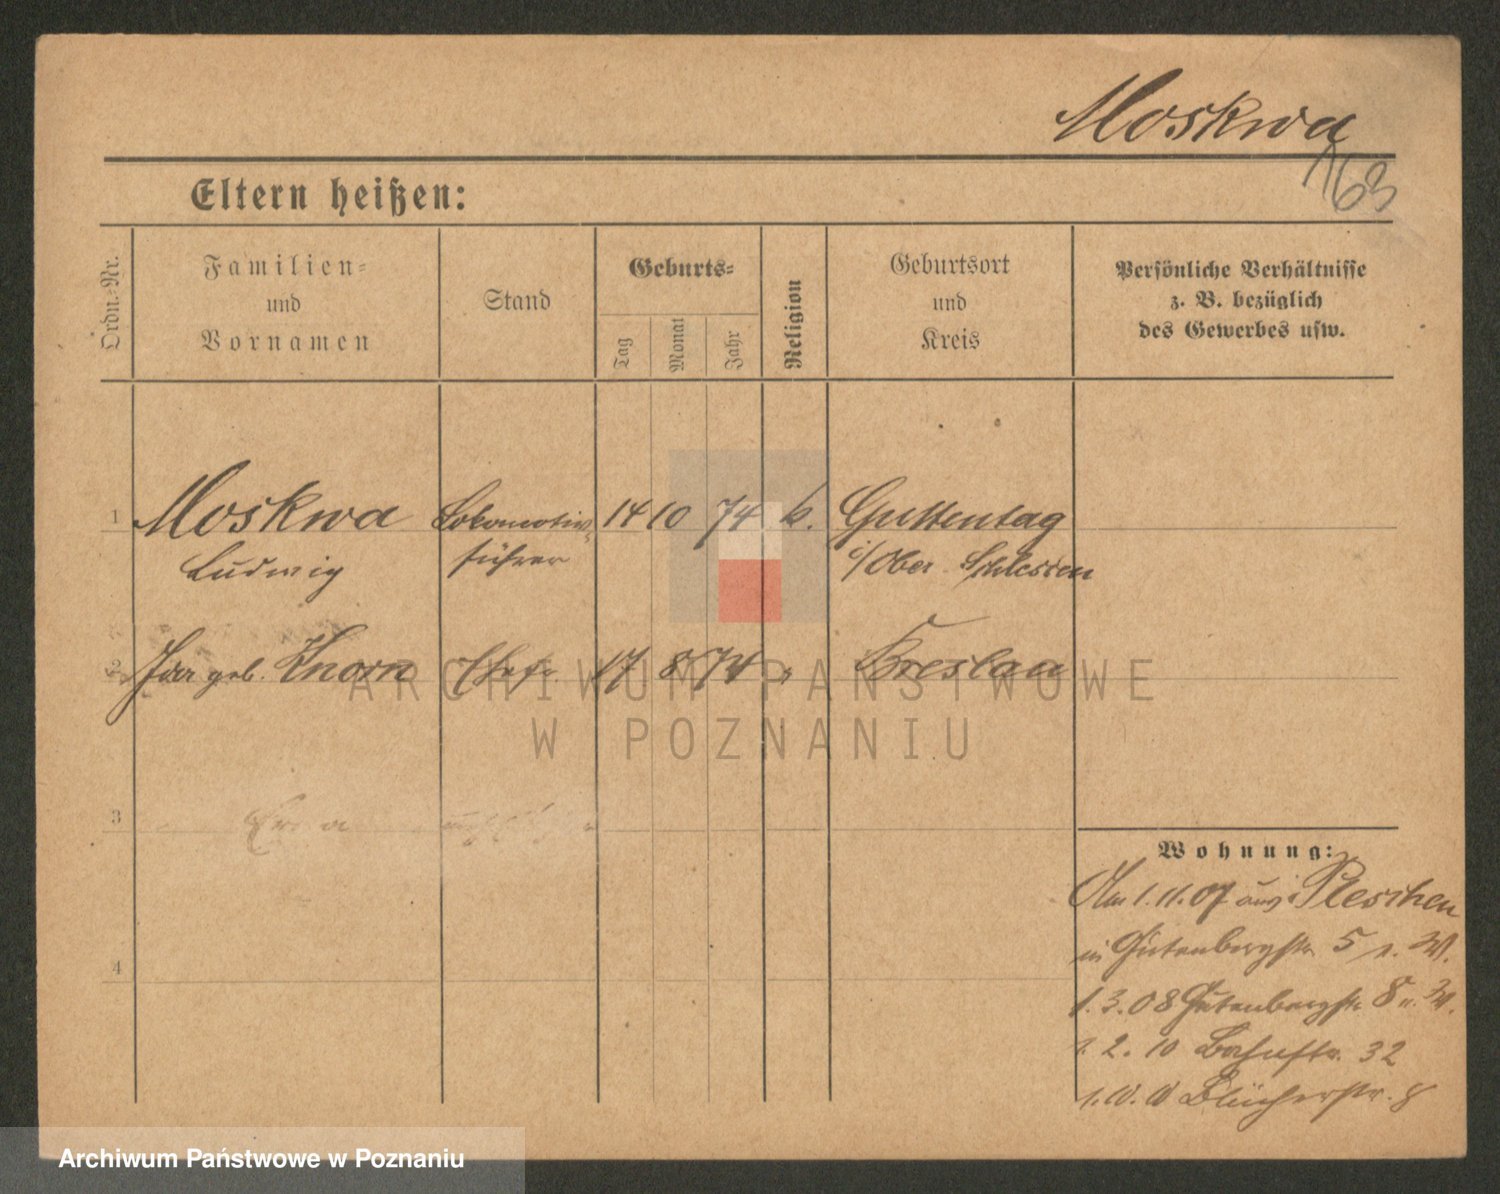 Moskwa
163
Eltern heißen:
Ordn.-Nr.
Familien-
und
Vornamen
Stand
Geburts-
Tag
Monat
Jahr
Religion
Geburtsort
und
Kreis
Persönliche Verhältnisse
z. B. bezüglich
des Gewerbes usw.
1 Moskwa Lokomotiv- 14 10 74 k. Guttentag
Ludwig führer i/Ober Schlesien
2 Ida geb. Knorn Ehefr. 17 8 74 " Breslau
ARCHIWUM PAŃSTWOWE
W POZNANIU
3
4
Wohnung:
Am 1.11.07 aus Pleschen
in Gutenbergstr 5 W.
1.3.08 Gutenbergstr 8 W.
1.2.10 Bahnstr. 32
Blücherstr. 8
Archiwum Państwowe w Poznaniu